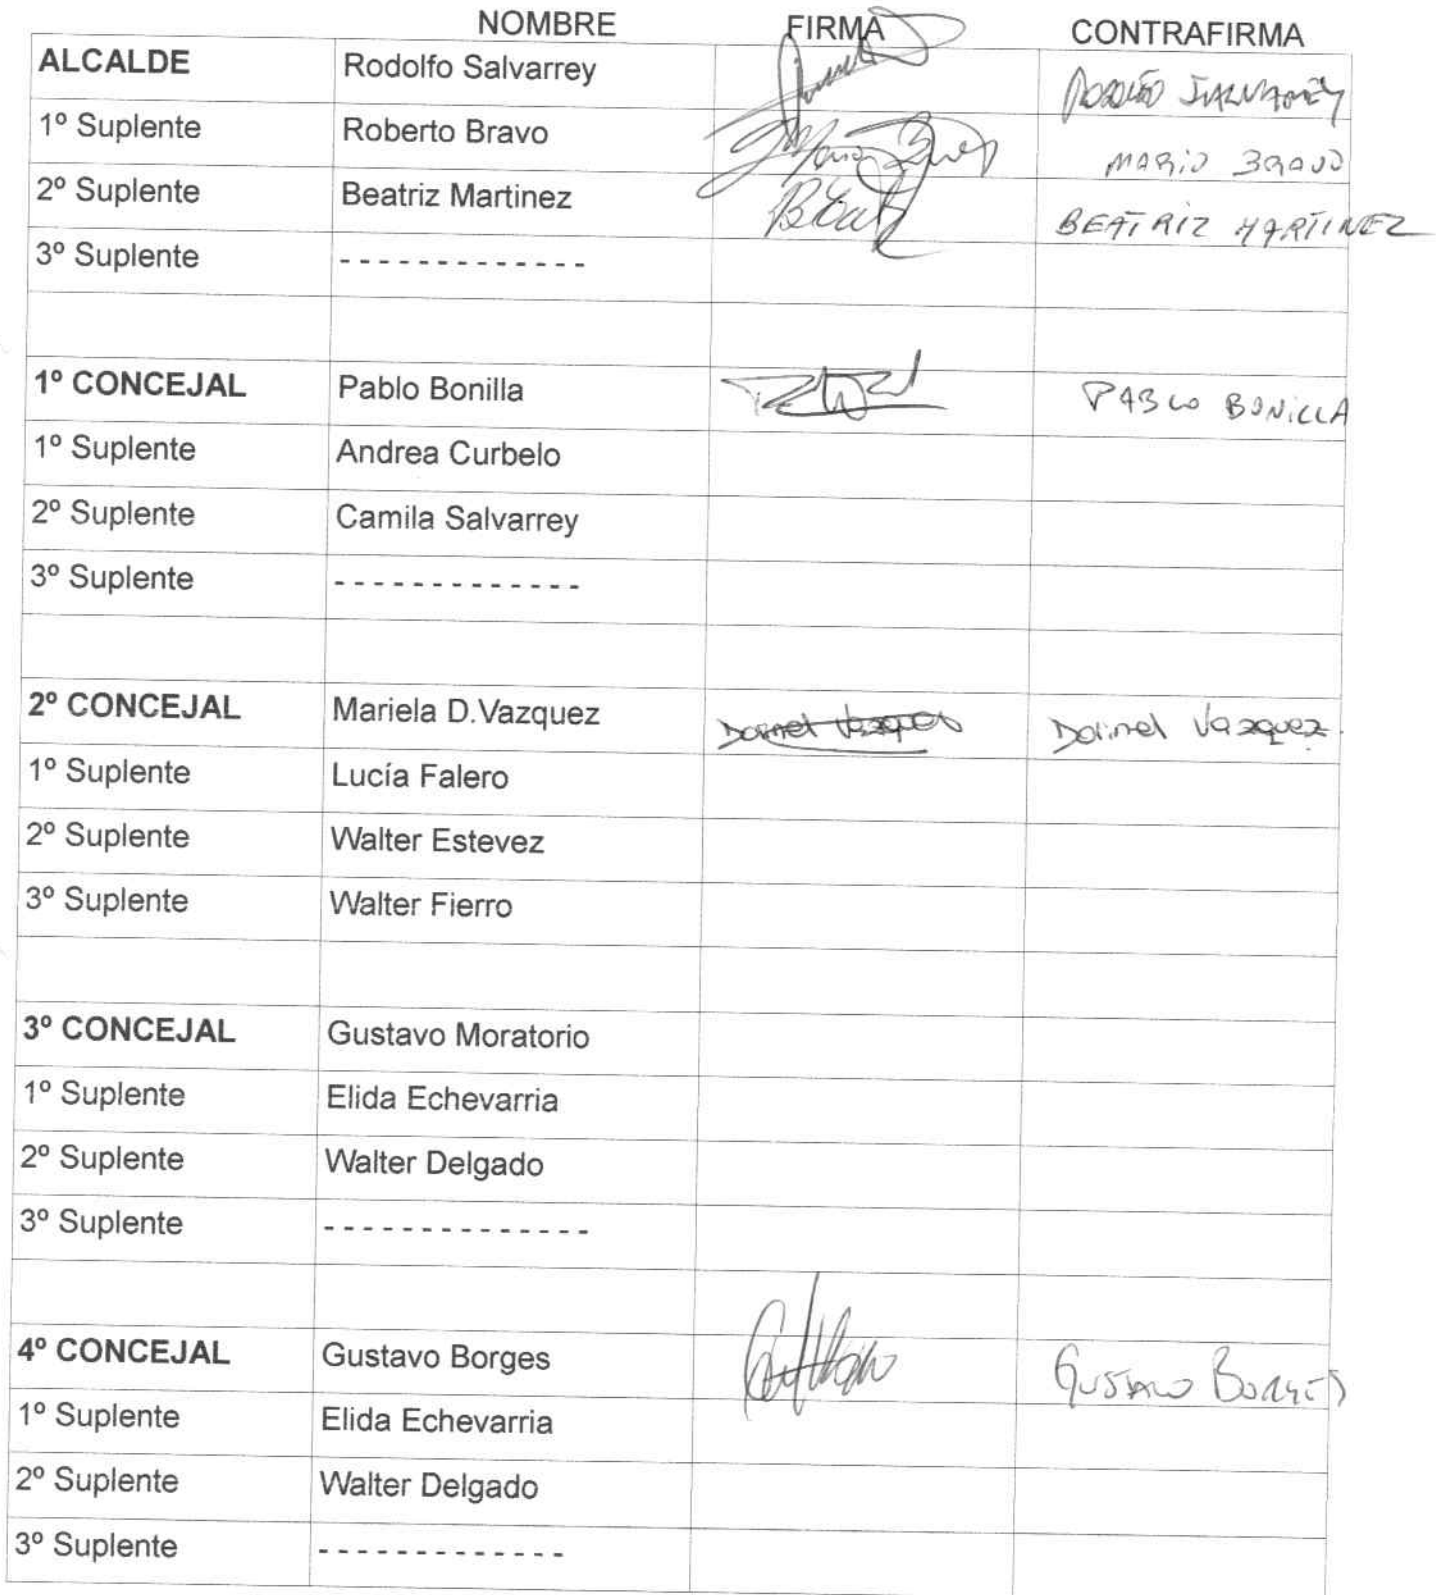 NOMBRE FIRMA CONTRAFIRMA
ALCALDE Rodolfo Salvarrey
1º Suplente Roberto Bravo MARIO BRAVO
2º Suplente Beatriz Martinez BEATRIZ MARTINEZ
3º Suplente - - - - - - - - - - - - -
1º CONCEJAL Pablo Bonilla PABLO BONILLA
1º Suplente Andrea Curbelo
2º Suplente Camila Salvarrey
3º Suplente - - - - - - - - - - - - -
2º CONCEJAL Mariela D.Vazquez Dorinel Vazquez
1º Suplente Lucía Falero
2º Suplente Walter Estevez
3º Suplente Walter Fierro
3º CONCEJAL Gustavo Moratorio
1º Suplente Elida Echevarria
2º Suplente Walter Delgado
3º Suplente - - - - - - - - - - - - - -
4º CONCEJAL Gustavo Borges GUSTAVO BORGES
1º Suplente Elida Echevarria
2º Suplente Walter Delgado
3º Suplente - - - - - - - - - - - - -